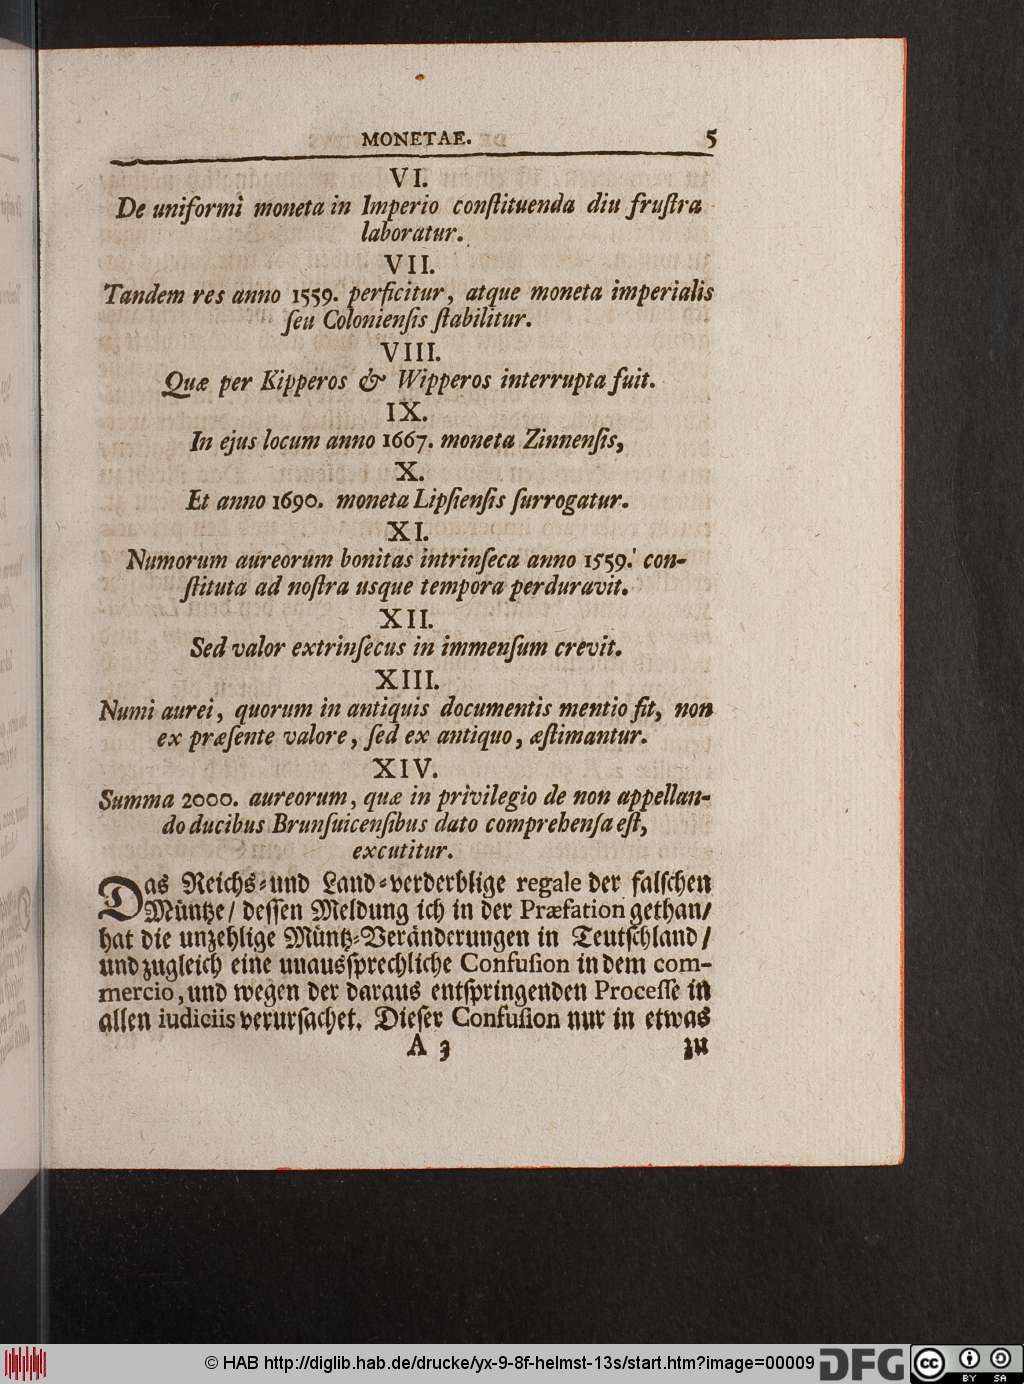 MONETAE. 5
VI.
De uniformi moneta in Imperio conſtituenda diu fruſtra
laboratur.
VII.
Tandem res anno 1559. perficitur, atque moneta imperialis
ſeu Colonienſis ſtabilitur.
VIII.
Quæ per Kipperos & Wipperos interrupta fuit.
IX.
In ejus locum anno 1667. moneta Zinnenſis,
X.
Et anno 1690. moneta Lipſienſis ſurrogatur.
XI.
Numorum aureorum bonitas intrinſeca anno 1559. con-
ſtituta ad noſtra usque tempora perduravit.
XII.
Sed valor extrinſecus in immenſum crevit.
XIII.
Numi aurei, quorum in antiquis documentis mentio fit, non
ex præſente valore, ſed ex antiquo, æſtimantur.
XIV.
Summa 2000. aureorum, quæ in privilegio de non appellan-
do ducibus Brunſuicenſibus dato comprehenſa eſt,
excutitur.
Das Reichs-und Land-verderblige regale der falſchen
Müntze/ deſſen Meldung ich in der Præfation gethan/
hat die unzehlige Müntz-Veränderungen in Teutſchland/
und zugleich eine unausſprechliche Confuſion in dem com-
mercio, und wegen der daraus entſpringenden Proceſſe in
allen iudiciis verurſachet. Dieſer Confuſion nur in etwas
A 3 zu
© HAB http://diglib.hab.de/drucke/yx-9-8f-helmst-13s/start.htm?image=00009 DFG cc BY SA